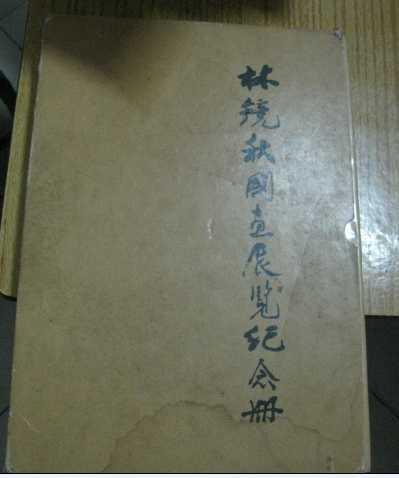 林镜秋國画展览纪念册